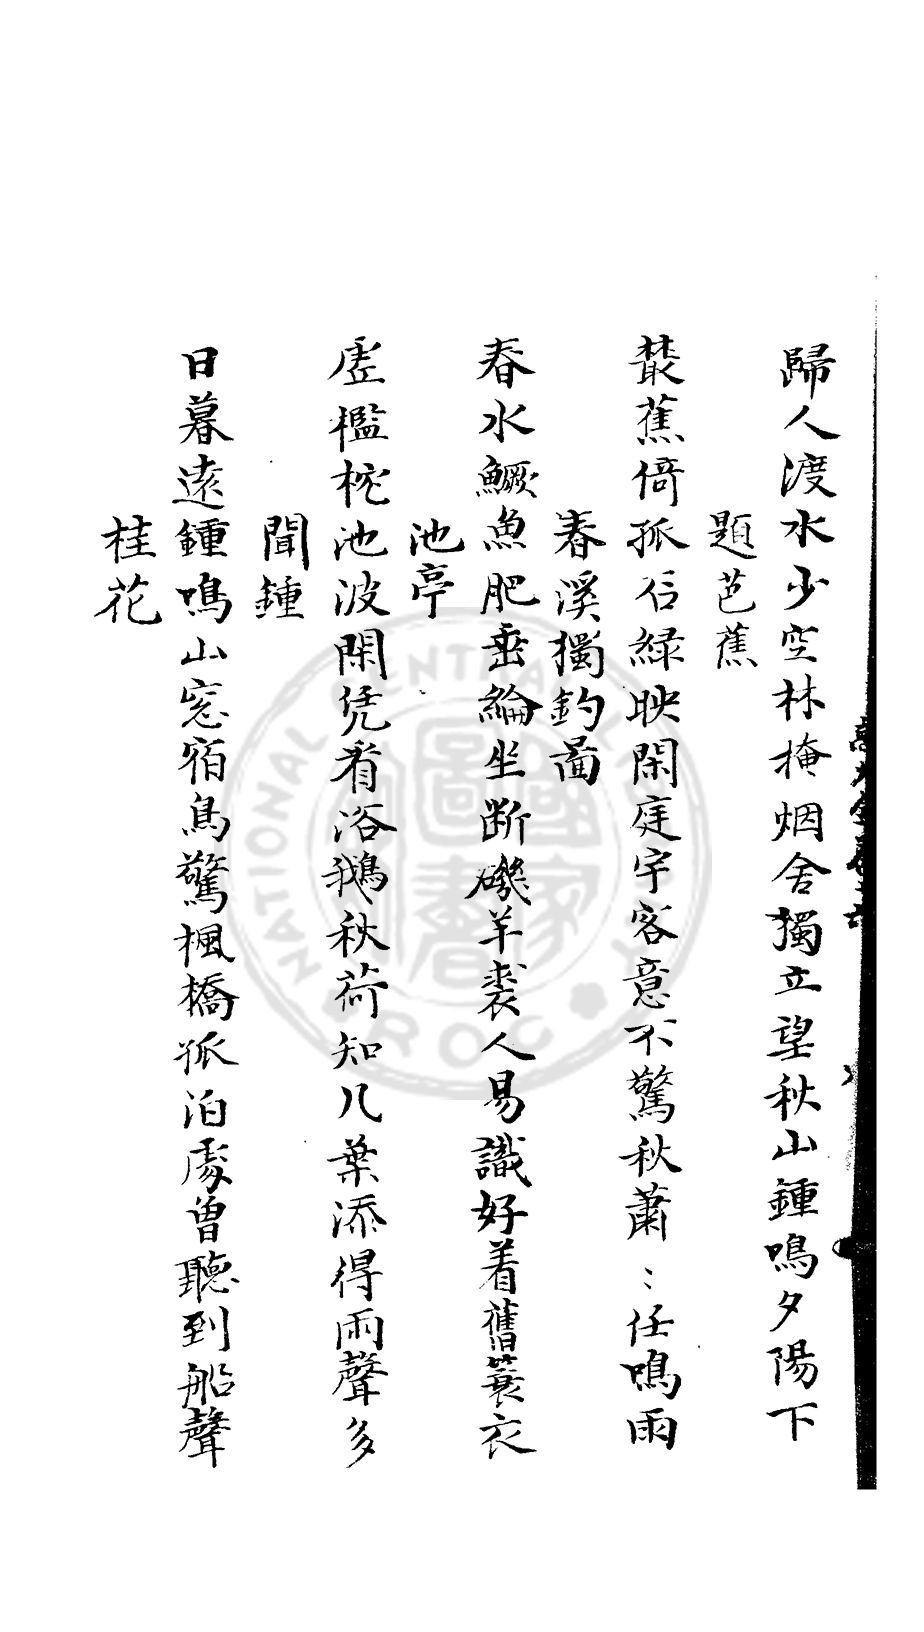 歸人渡水少空林掩烟舍獨立望秋山鍾鳴夕陽下
題芭蕉
叢蕉倚孤石綠映閑庭宇客意不驚秋蕭〻任鳴雨
春溪獨釣圖
春水鱖魚肥垂綸坐斷磯羊裘人易識好着舊蓑衣
池亭
虛檻枕池波閑凭看浴鵝秋荷知几葉添得雨聲多
聞鍾
日暮遠鍾鳴山窓宿鳥驚楓橋孤泊處曾聽到船聲
桂花
NATIONAL CENTRAL LIBRARY
R.O.C
國家圖書館